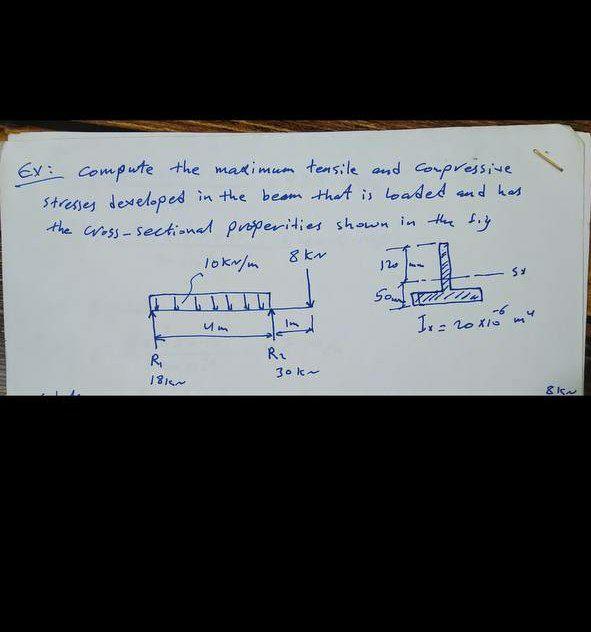 Ex: Compute the maximum tensile and compressive
stresses developed in the beam that is loaded and has
the cross-sectional properities shown in the fig
10 kN/m
8 kN
120 mm
50mm
Ix = 20 x10⁻⁶ m⁴
4m
1m
R₁
R₂
18kN
30 kN
8 kN